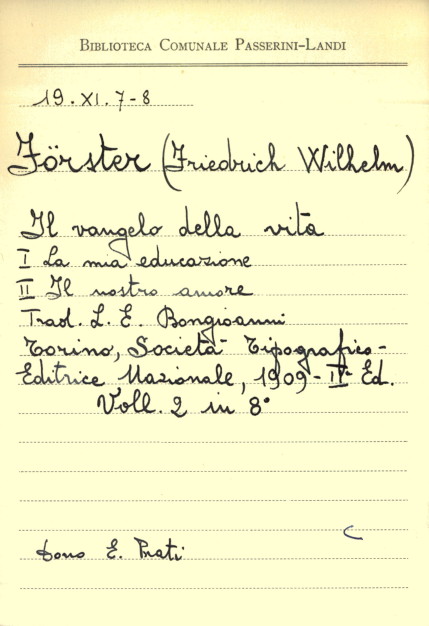 BIBLIOTECA COMUNALE PASSERINI-LANDI
19.XI.7-8
Förster (Friedrich Wilhelm)
Il vangelo della vita
I La mia educazione
II Il nostro amore
Trad. L. E. Bongioanni
Torino, Società Tipografico-
Editrice Nazionale, 1909 - IVª Ed.
Voll. 2 in 8°
C
Dono E. Prati